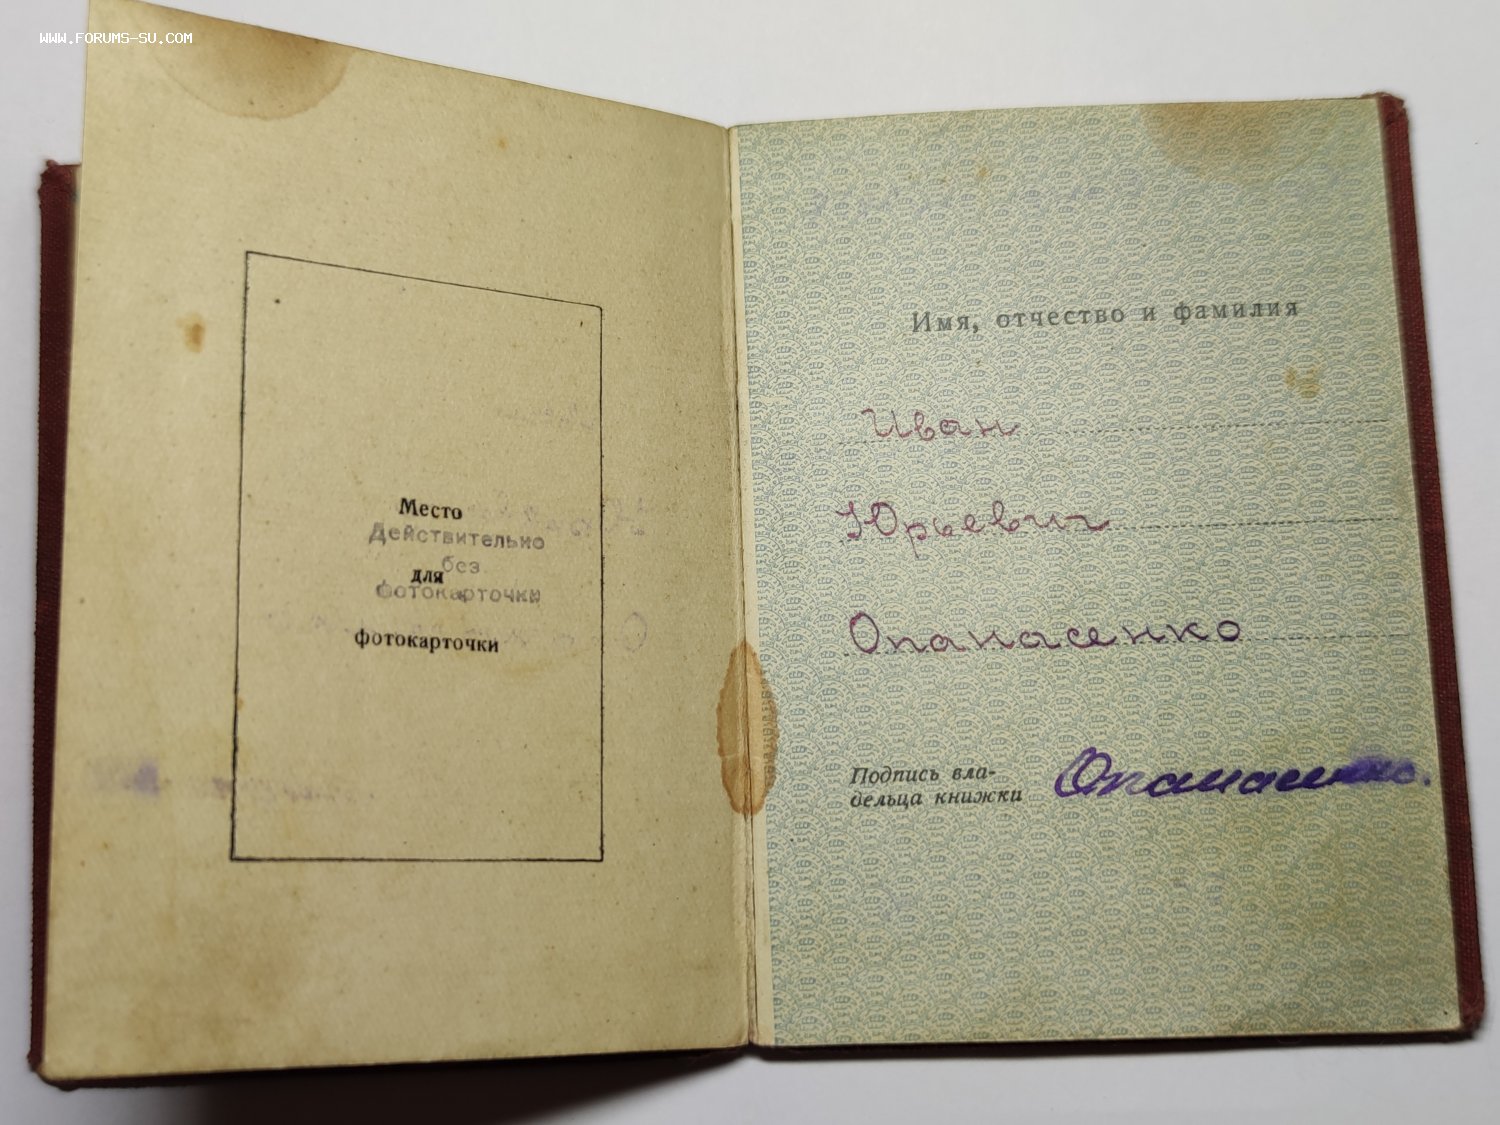 WWW.FORUMS-SU.COM
Место
Действительно
без
для
фотокарточки
фотокарточки
Имя, отчество и фамилия
Иван
Юрьевич
Опанасенко
Подпись вла-
дельца книжки
Опанасенко.